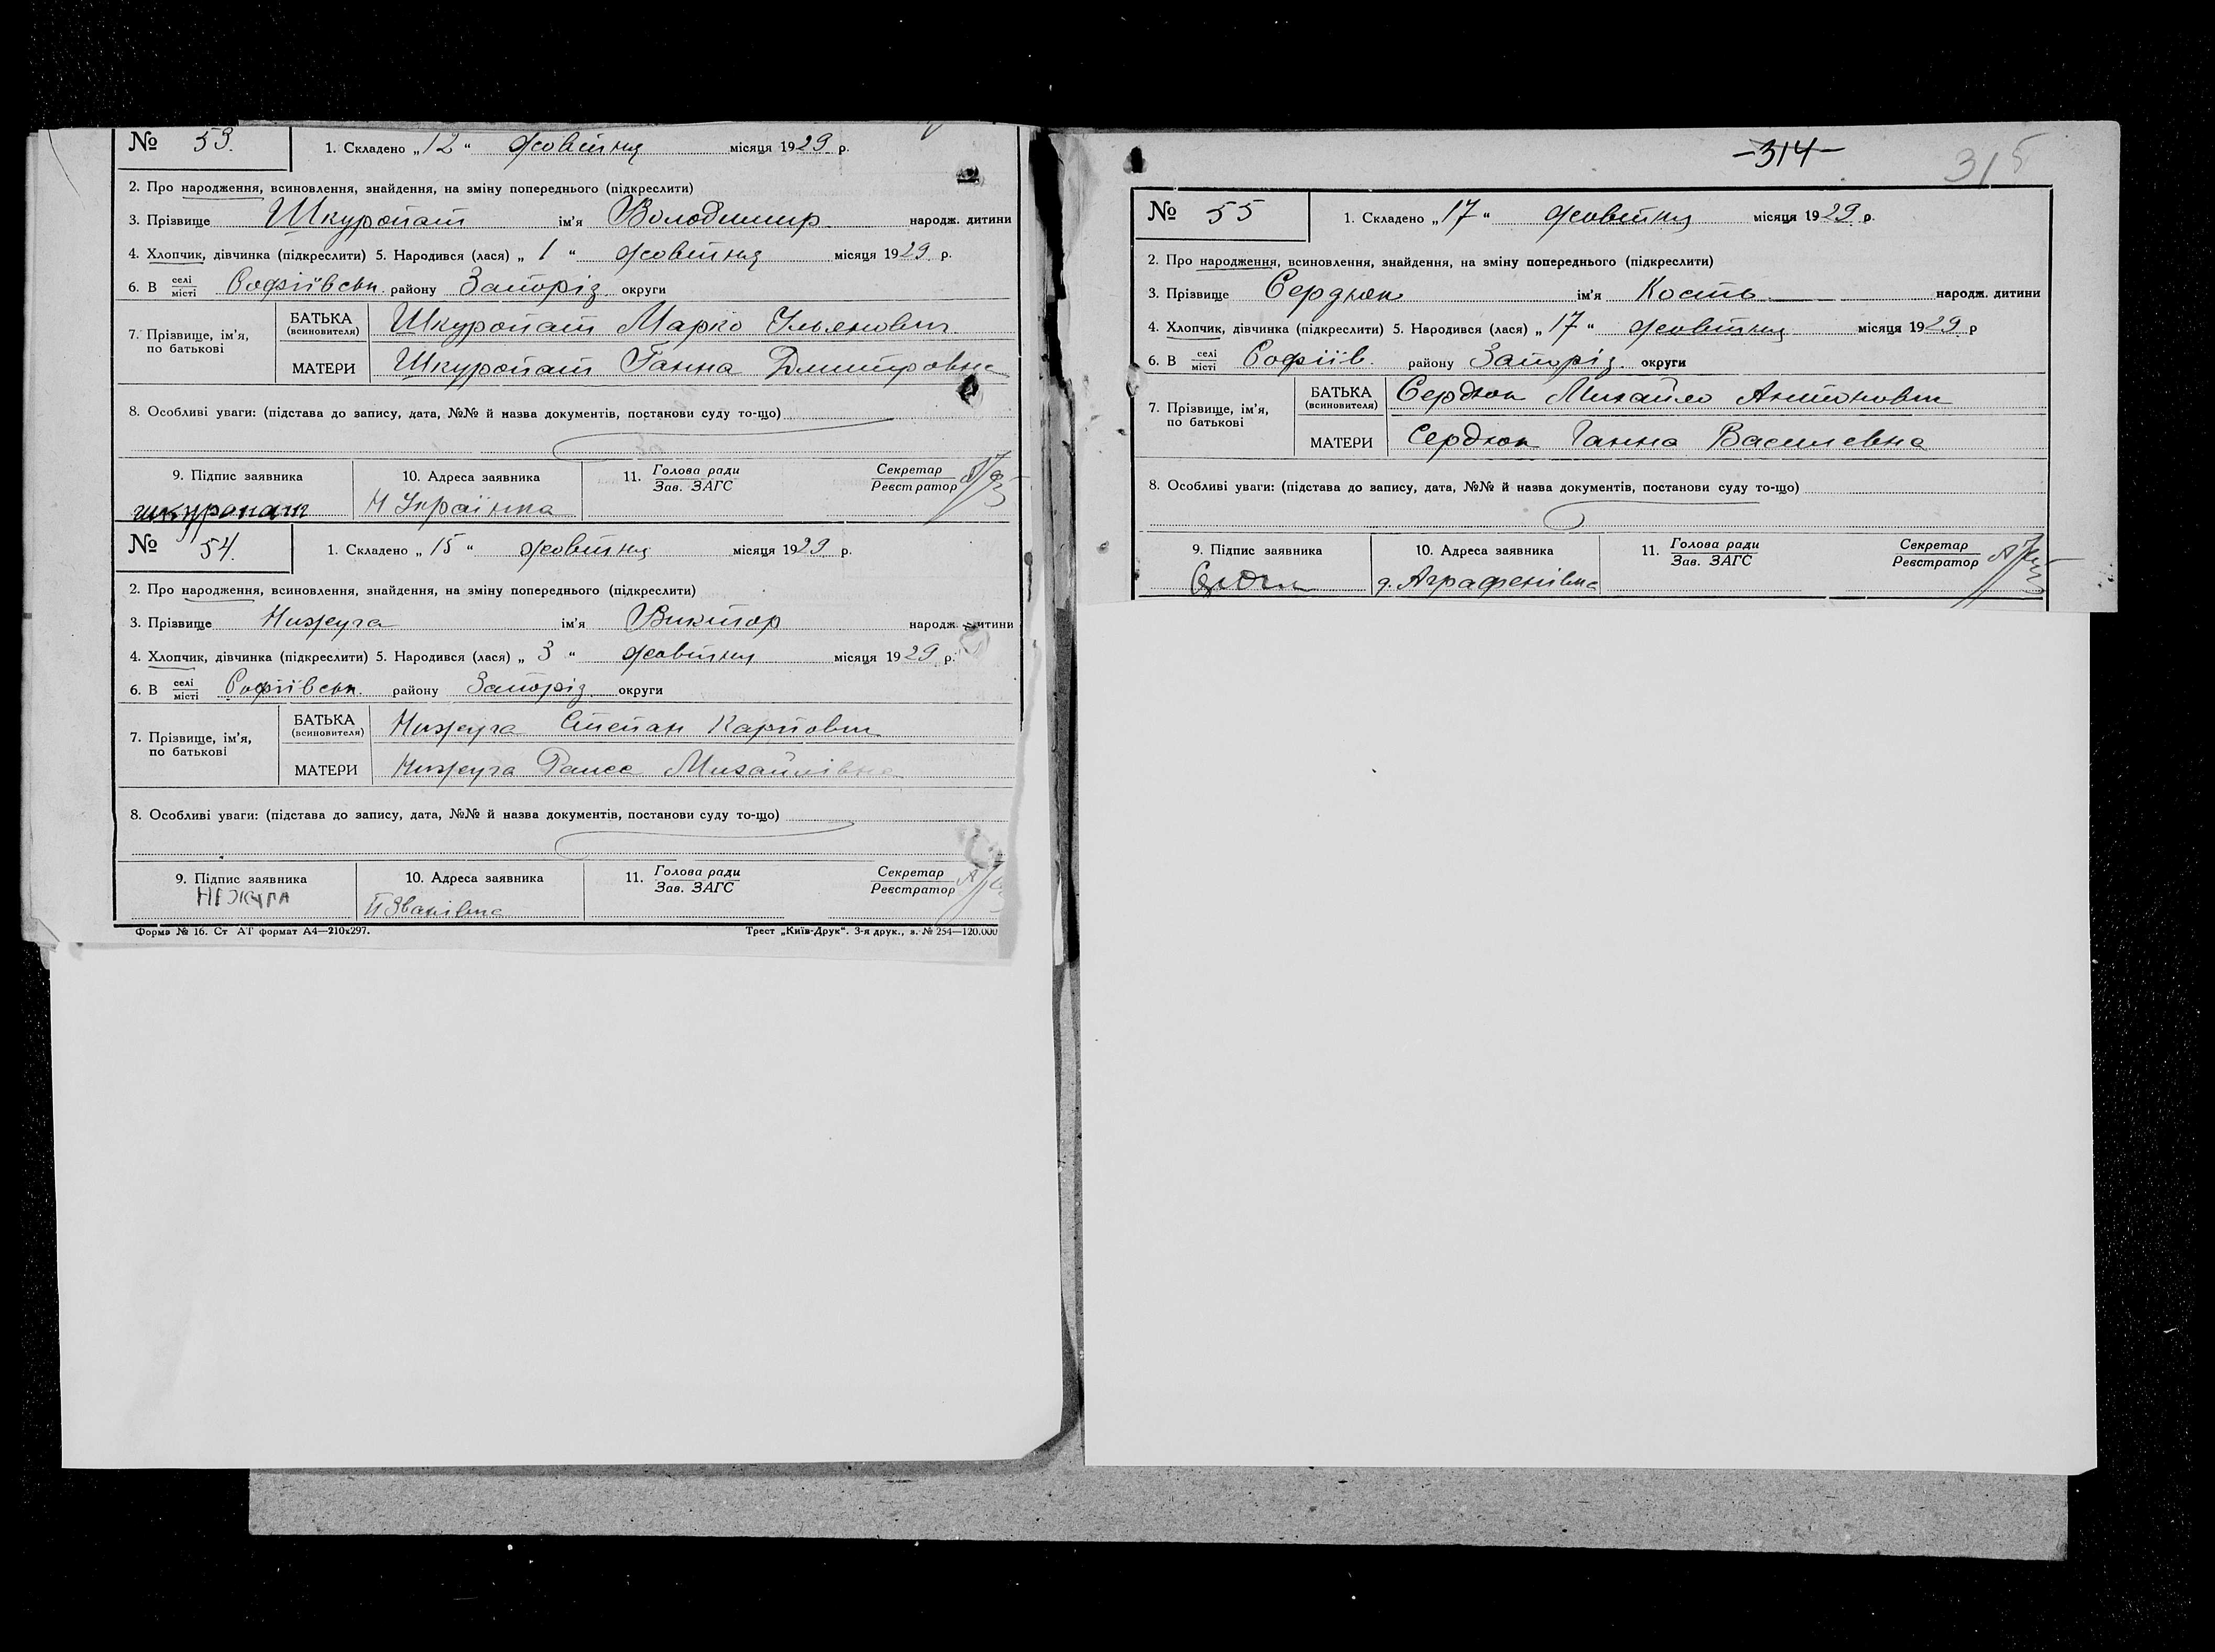 № 53. 1. Складено „12“ жовтня місяця 1929 р.
2. Про народження, всиновлення, знайдення, на зміну попереднього (підкреслити)
3. Прізвище Шкуропат ім'я Володимир народж. дитини
4. Хлопчик, дівчинка (підкреслити) 5. Народився (лася) „1“ жовтня місяця 1929 р.
6. В селі місті Софіївськ. району Запоріз. округи
7. Прізвище, ім'я, по батькові
БАТЬКА (всиновителя) Шкуропат Марко Ульянович
МАТЕРИ Шкуропат Ганна Дмитровна
8. Особливі уваги: (підстава до запису, дата, №№ й назва документів, постанови суду то-що)
9. Підпис заявника 10. Адреса заявника 11. Голова ради Зав. ЗАГС Секретар Реєстратор
шкуропат Н Українка
№ 54. 1. Складено „15“ жовтня місяця 1929 р.
2. Про народження, всиновлення, знайдення, на зміну попереднього (підкреслити)
3. Прізвище Нижуга ім'я Виктор народж. дитини
4. Хлопчик, дівчинка (підкреслити) 5. Народився (лася) „3“ жовтня місяця 1929 р.
6. В селі місті Софіївськ. району Запоріз. округи
7. Прізвище, ім'я, по батькові
БАТЬКА (всиновителя) Нижуга Степан Карпович
МАТЕРИ Нижуга Раиса Михайлівна
8. Особливі уваги: (підстава до запису, дата, №№ й назва документів, постанови суду то-що)
9. Підпис заявника 10. Адреса заявника 11. Голова ради Зав. ЗАГС Секретар Реєстратор
Форма № 16. Ст АТ формат А4—210х297. Трест „Київ-Друк“. 3-я друк., з. № 254—120.000
-314-
315
№ 55 1. Складено „17“ жовтня місяця 1929 р.
2. Про народження, всиновлення, знайдення, на зміну попереднього (підкреслити)
3. Прізвище Сердюк ім'я Кость народж. дитини
4. Хлопчик, дівчинка (підкреслити) 5. Народився (лася) „17“ жовтня місяця 1929 р
6. В селі місті Софіїв. району Запоріз. округи
7. Прізвище, ім'я, по батькові
БАТЬКА (всиновителя) Сердюк Михайло Антонович
МАТЕРИ Сердюк Ганна Василевна
8. Особливі уваги: (підстава до запису, дата, №№ й назва документів, постанови суду то-що)
9. Підпис заявника 10. Адреса заявника 11. Голова ради Зав. ЗАГС Секретар Реєстратор
д. Аграфенівка